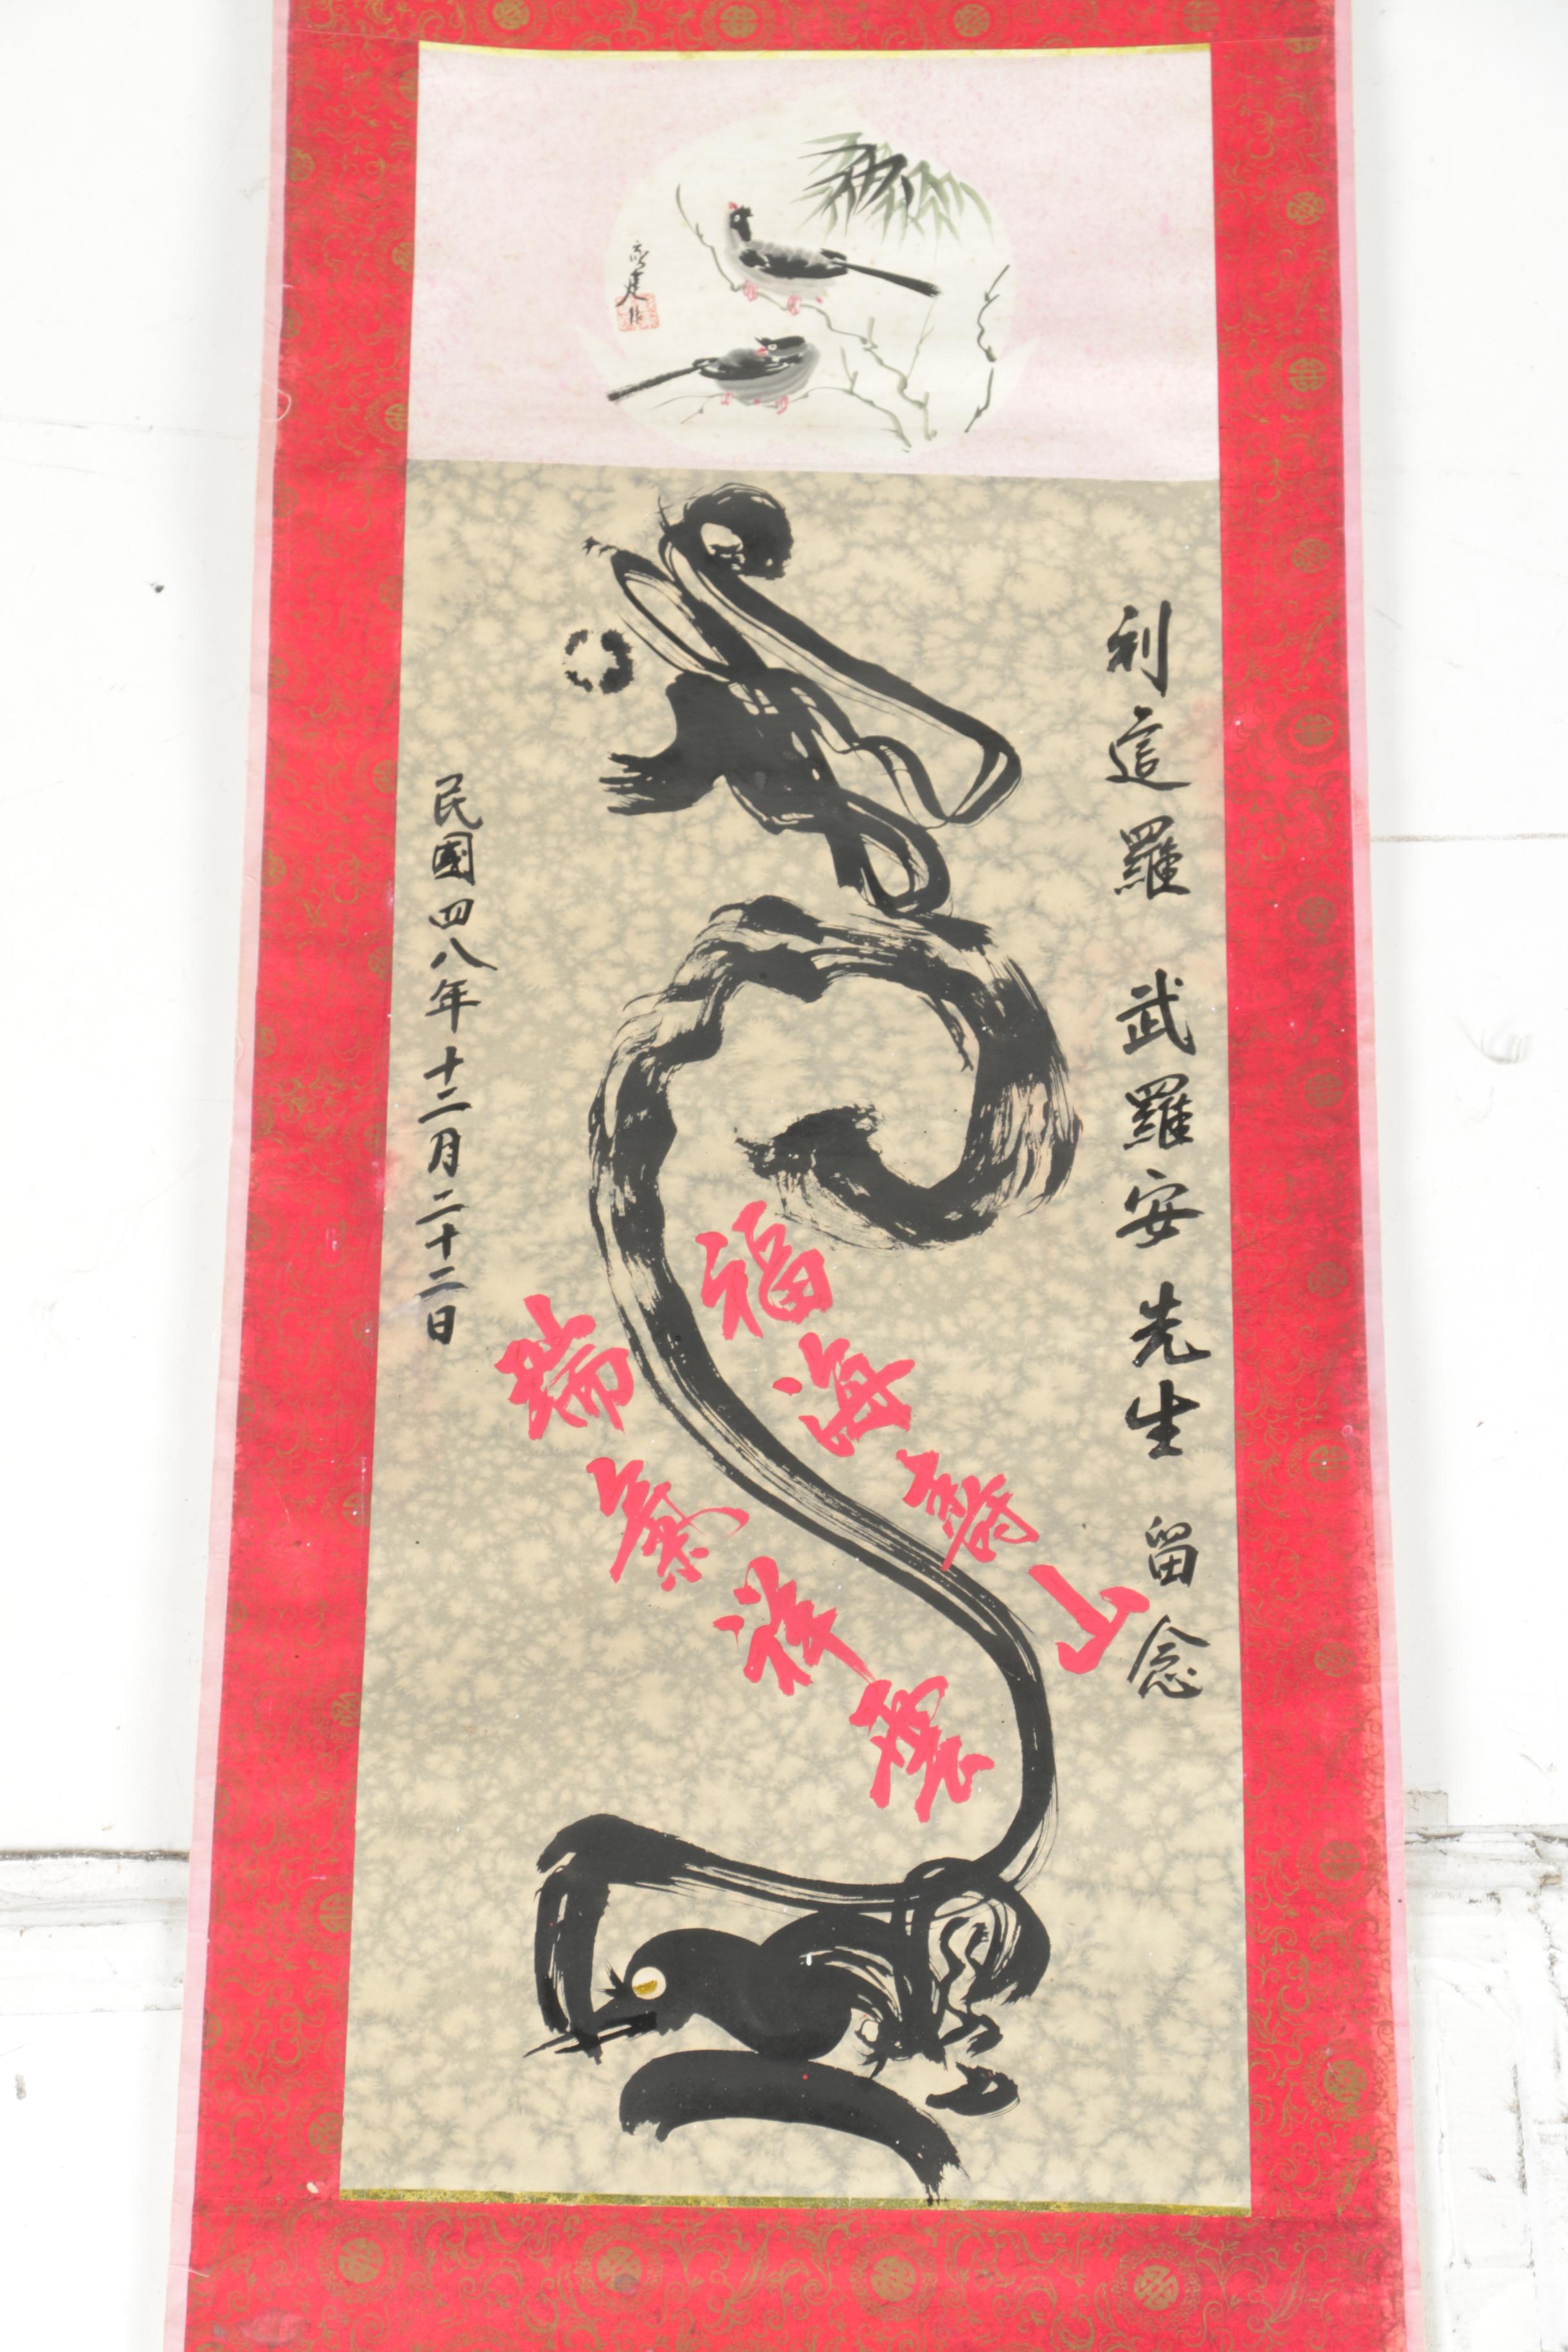 利這羅 武羅安 先生 留念
福海壽山
瑞氣祥雲
民國四八年十二月二十二日